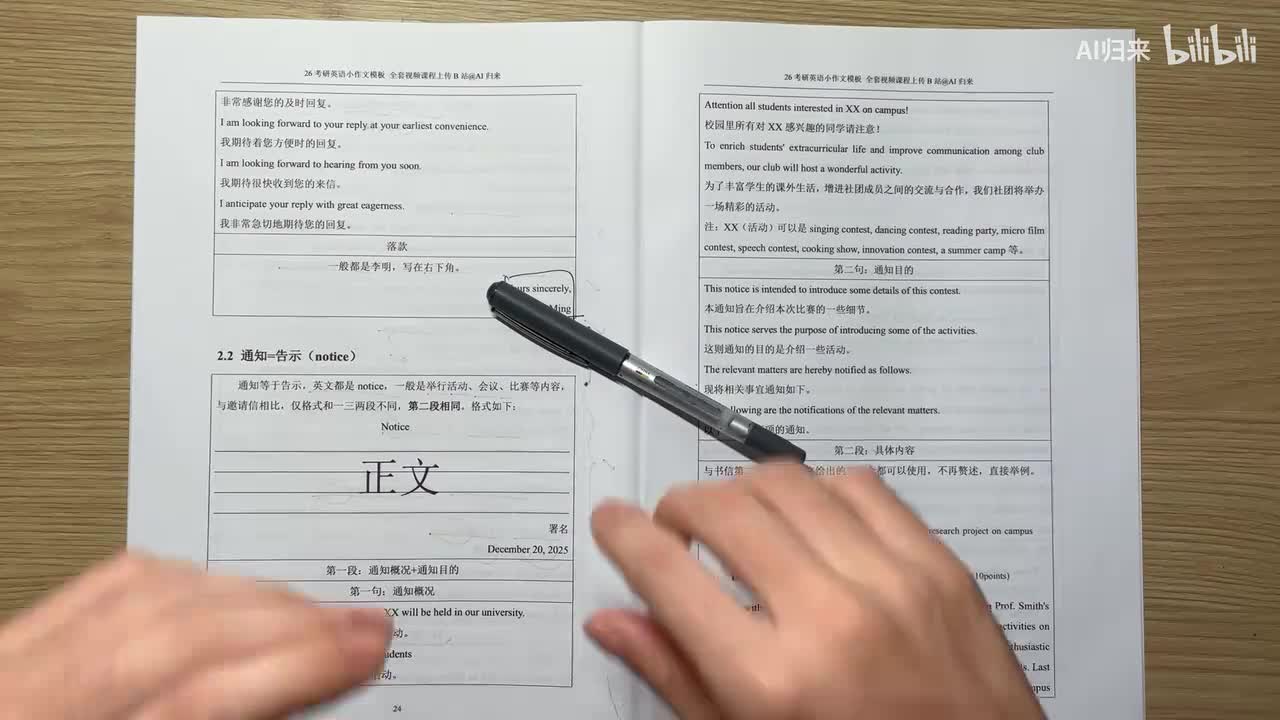 AI归来 bilibili
26 考研英语小作文模板 全套视频课程上传 B 站@AI 归来
非常感谢您的及时回复。
I am looking forward to your reply at your earliest convenience.
我期待着您方便时的回复。
I am looking forward to hearing from you soon.
我期待很快收到您的来信。
I anticipate your reply with great eagerness.
我非常急切地期待您的回复。
落款
一般都是李明，写在右下角。
sincerely,
Ming
2.2 通知=告示（notice）
通知等于告示，英文都是 notice，一般是举行活动、会议、比赛等内容，
与邀请信相比，仅格式和一三两段不同，第二段相同。格式如下：
Notice
正文
署名
December 20, 2025
第一段：通知概况+通知目的
第一句：通知概况
XX will be held in our university.
动。
动。
24
26 考研英语小作文模板 全套视频课程上传 B 站@AI 归来
Attention all students interested in XX on campus!
校园里所有对 XX 感兴趣的同学请注意！
To enrich students' extracurricular life and improve communication among club
members, our club will host a wonderful activity.
为了丰富学生的课外生活，增进社团成员之间的交流与合作，我们社团将举办
一场精彩的活动。
注：XX（活动）可以是 singing contest, dancing contest, reading party, micro film
contest, speech contest, cooking show, innovation contest, a summer camp 等。
第二句：通知目的
This notice is intended to introduce some details of this contest.
本通知旨在介绍本次比赛的一些细节。
This notice serves the purpose of introducing some of the activities.
这则通知的目的是介绍一些活动。
The relevant matters are hereby notified as follows.
现将相关事宜通知如下。
are the notifications of the relevant matters.
项的通知。
第二段：具体内容
与书信第 给出的 都可以使用，不再赘述，直接举例。
research project on campus
10points)
Prof. Smith's
activities on
Last